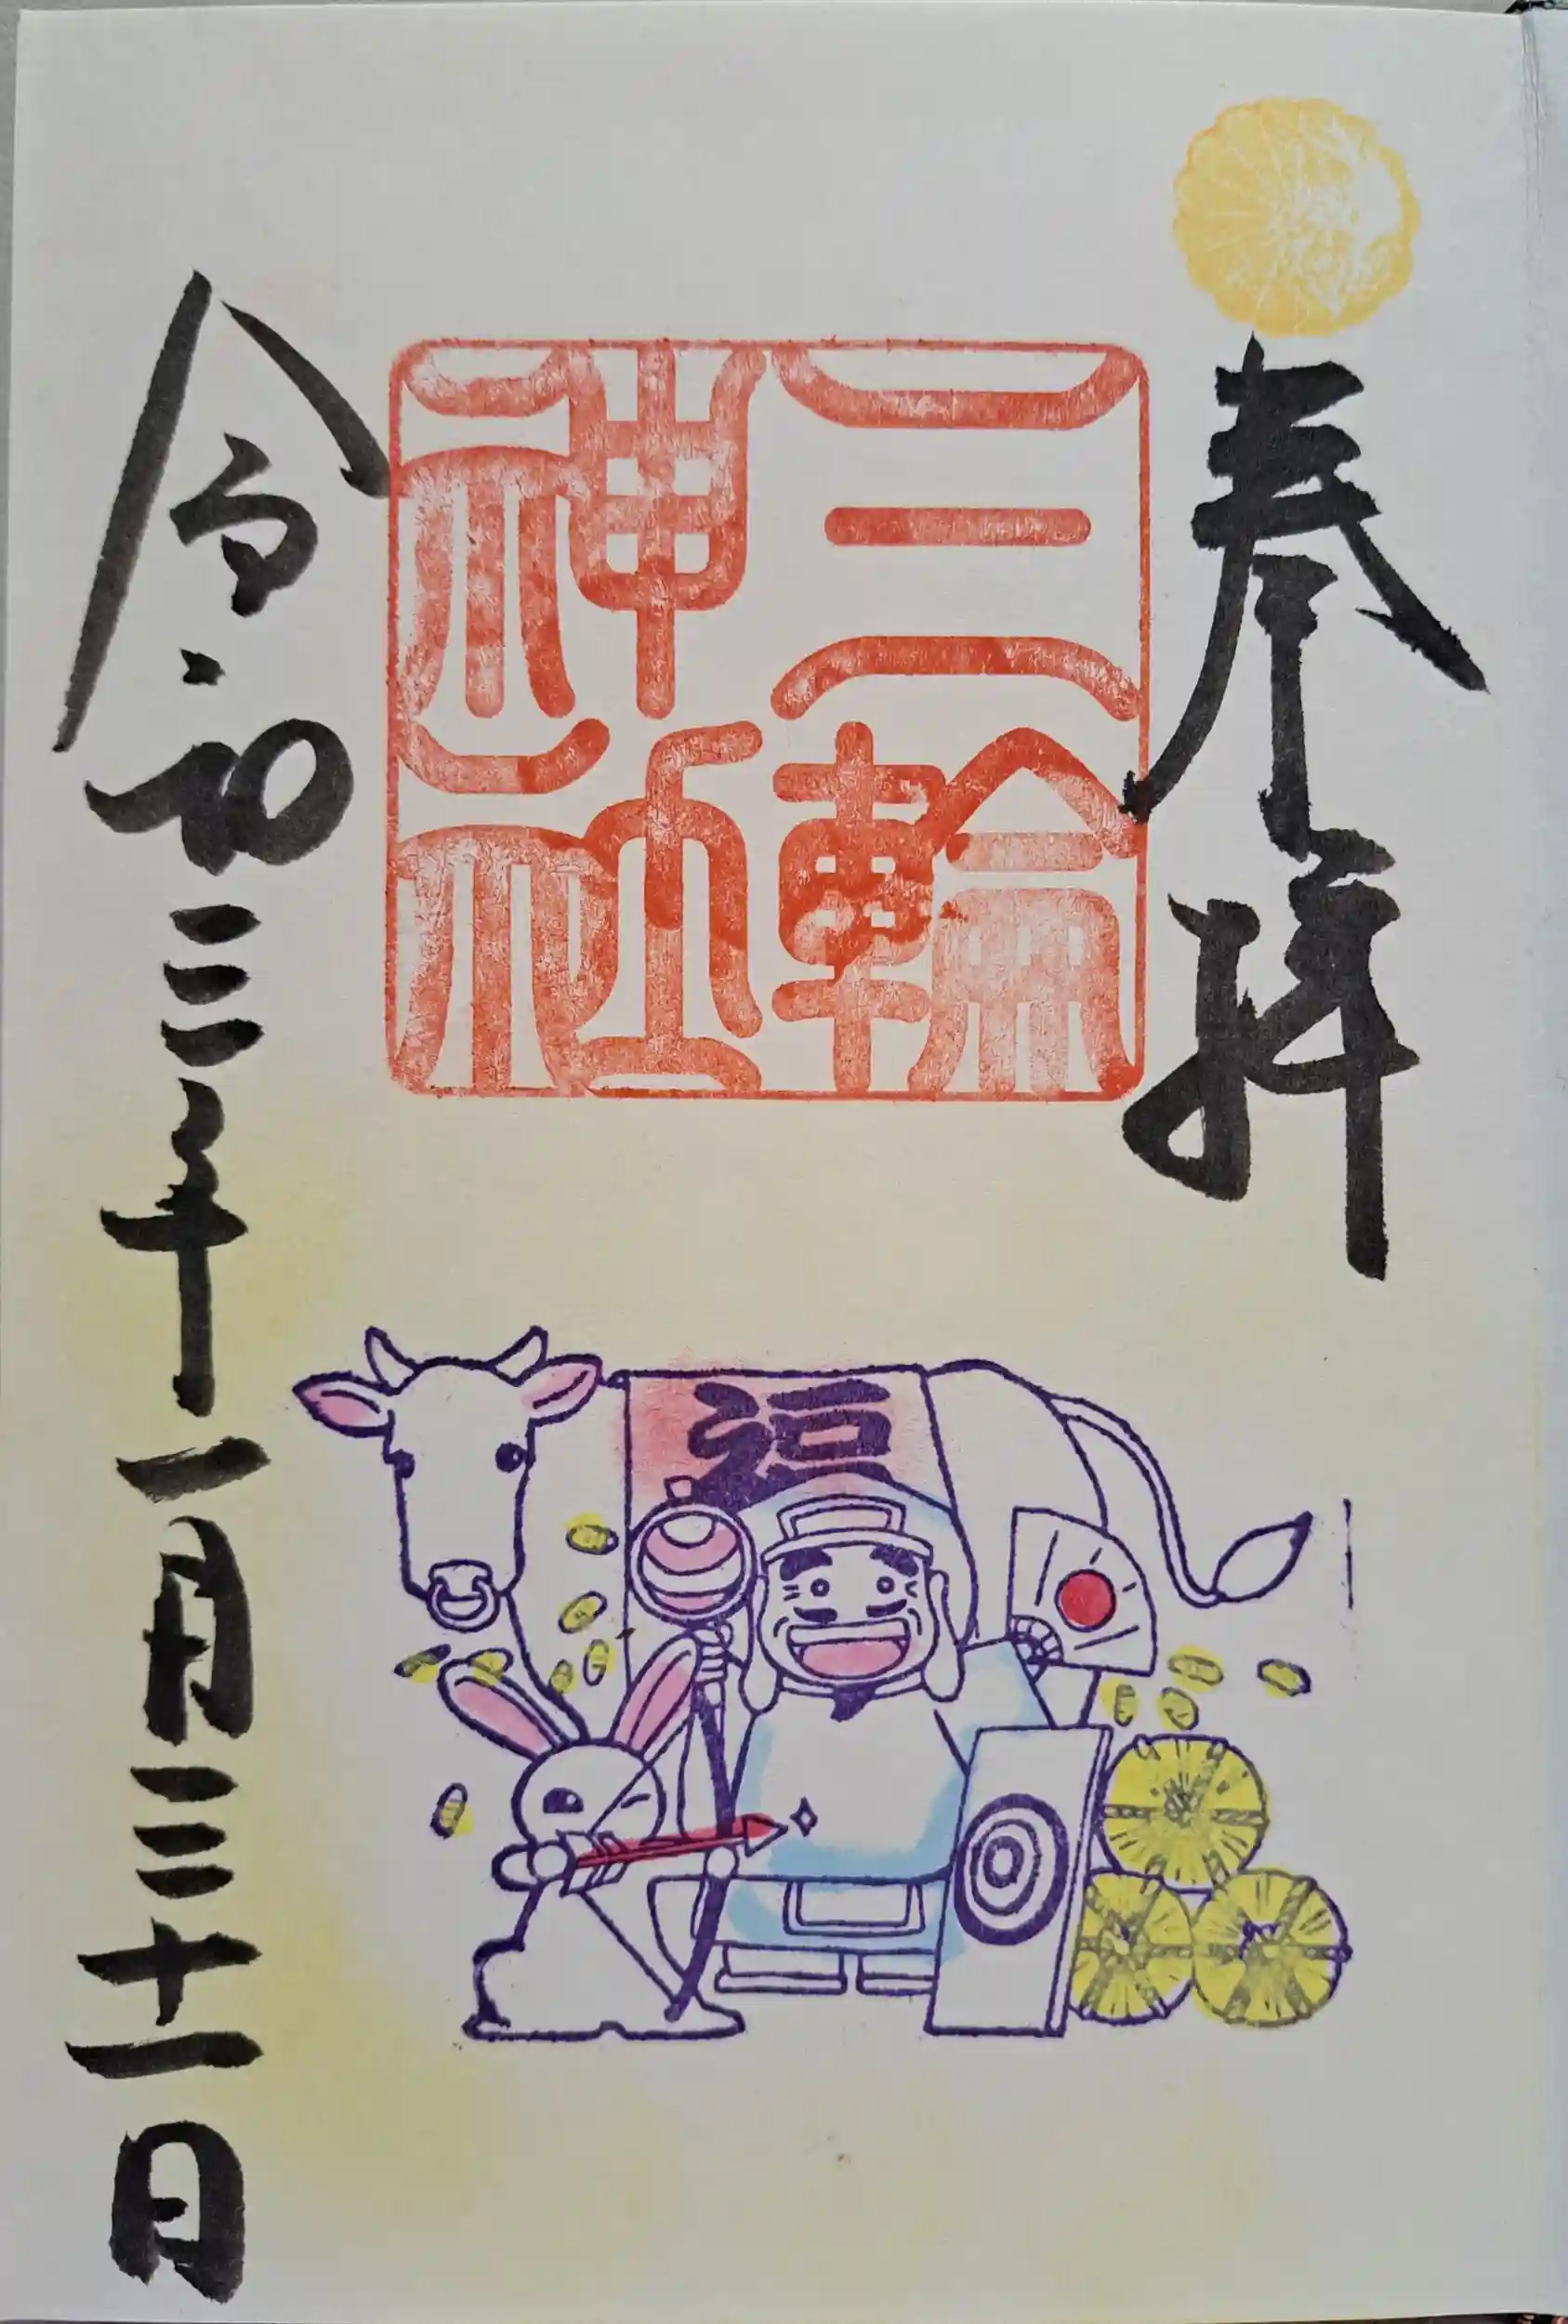 奉拝
三輪神社
令和三年一月三十一日
福